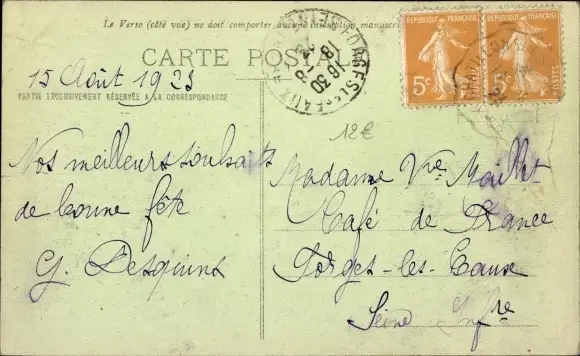 Le Verso (côté vue) ne doit comporter aucune indication manuscri
CARTE POSTALE
PARTIE EXCLUSIVEMENT RÉSERVÉE A LA CORRESPONDANCE
15 Août 1923
Nos meilleurs souhaits
de bonne fête
G. Desquins
REPUBLIQUE FRANÇAISE
5c
POSTES
REPUBLIQUE FRANÇAISE
5c
POSTES
FORGES-LES-EAUX
16 30
18 - 8
12€
Madame Vve Maillet
Café de France
Forges-les-Eaux
Seine Infre